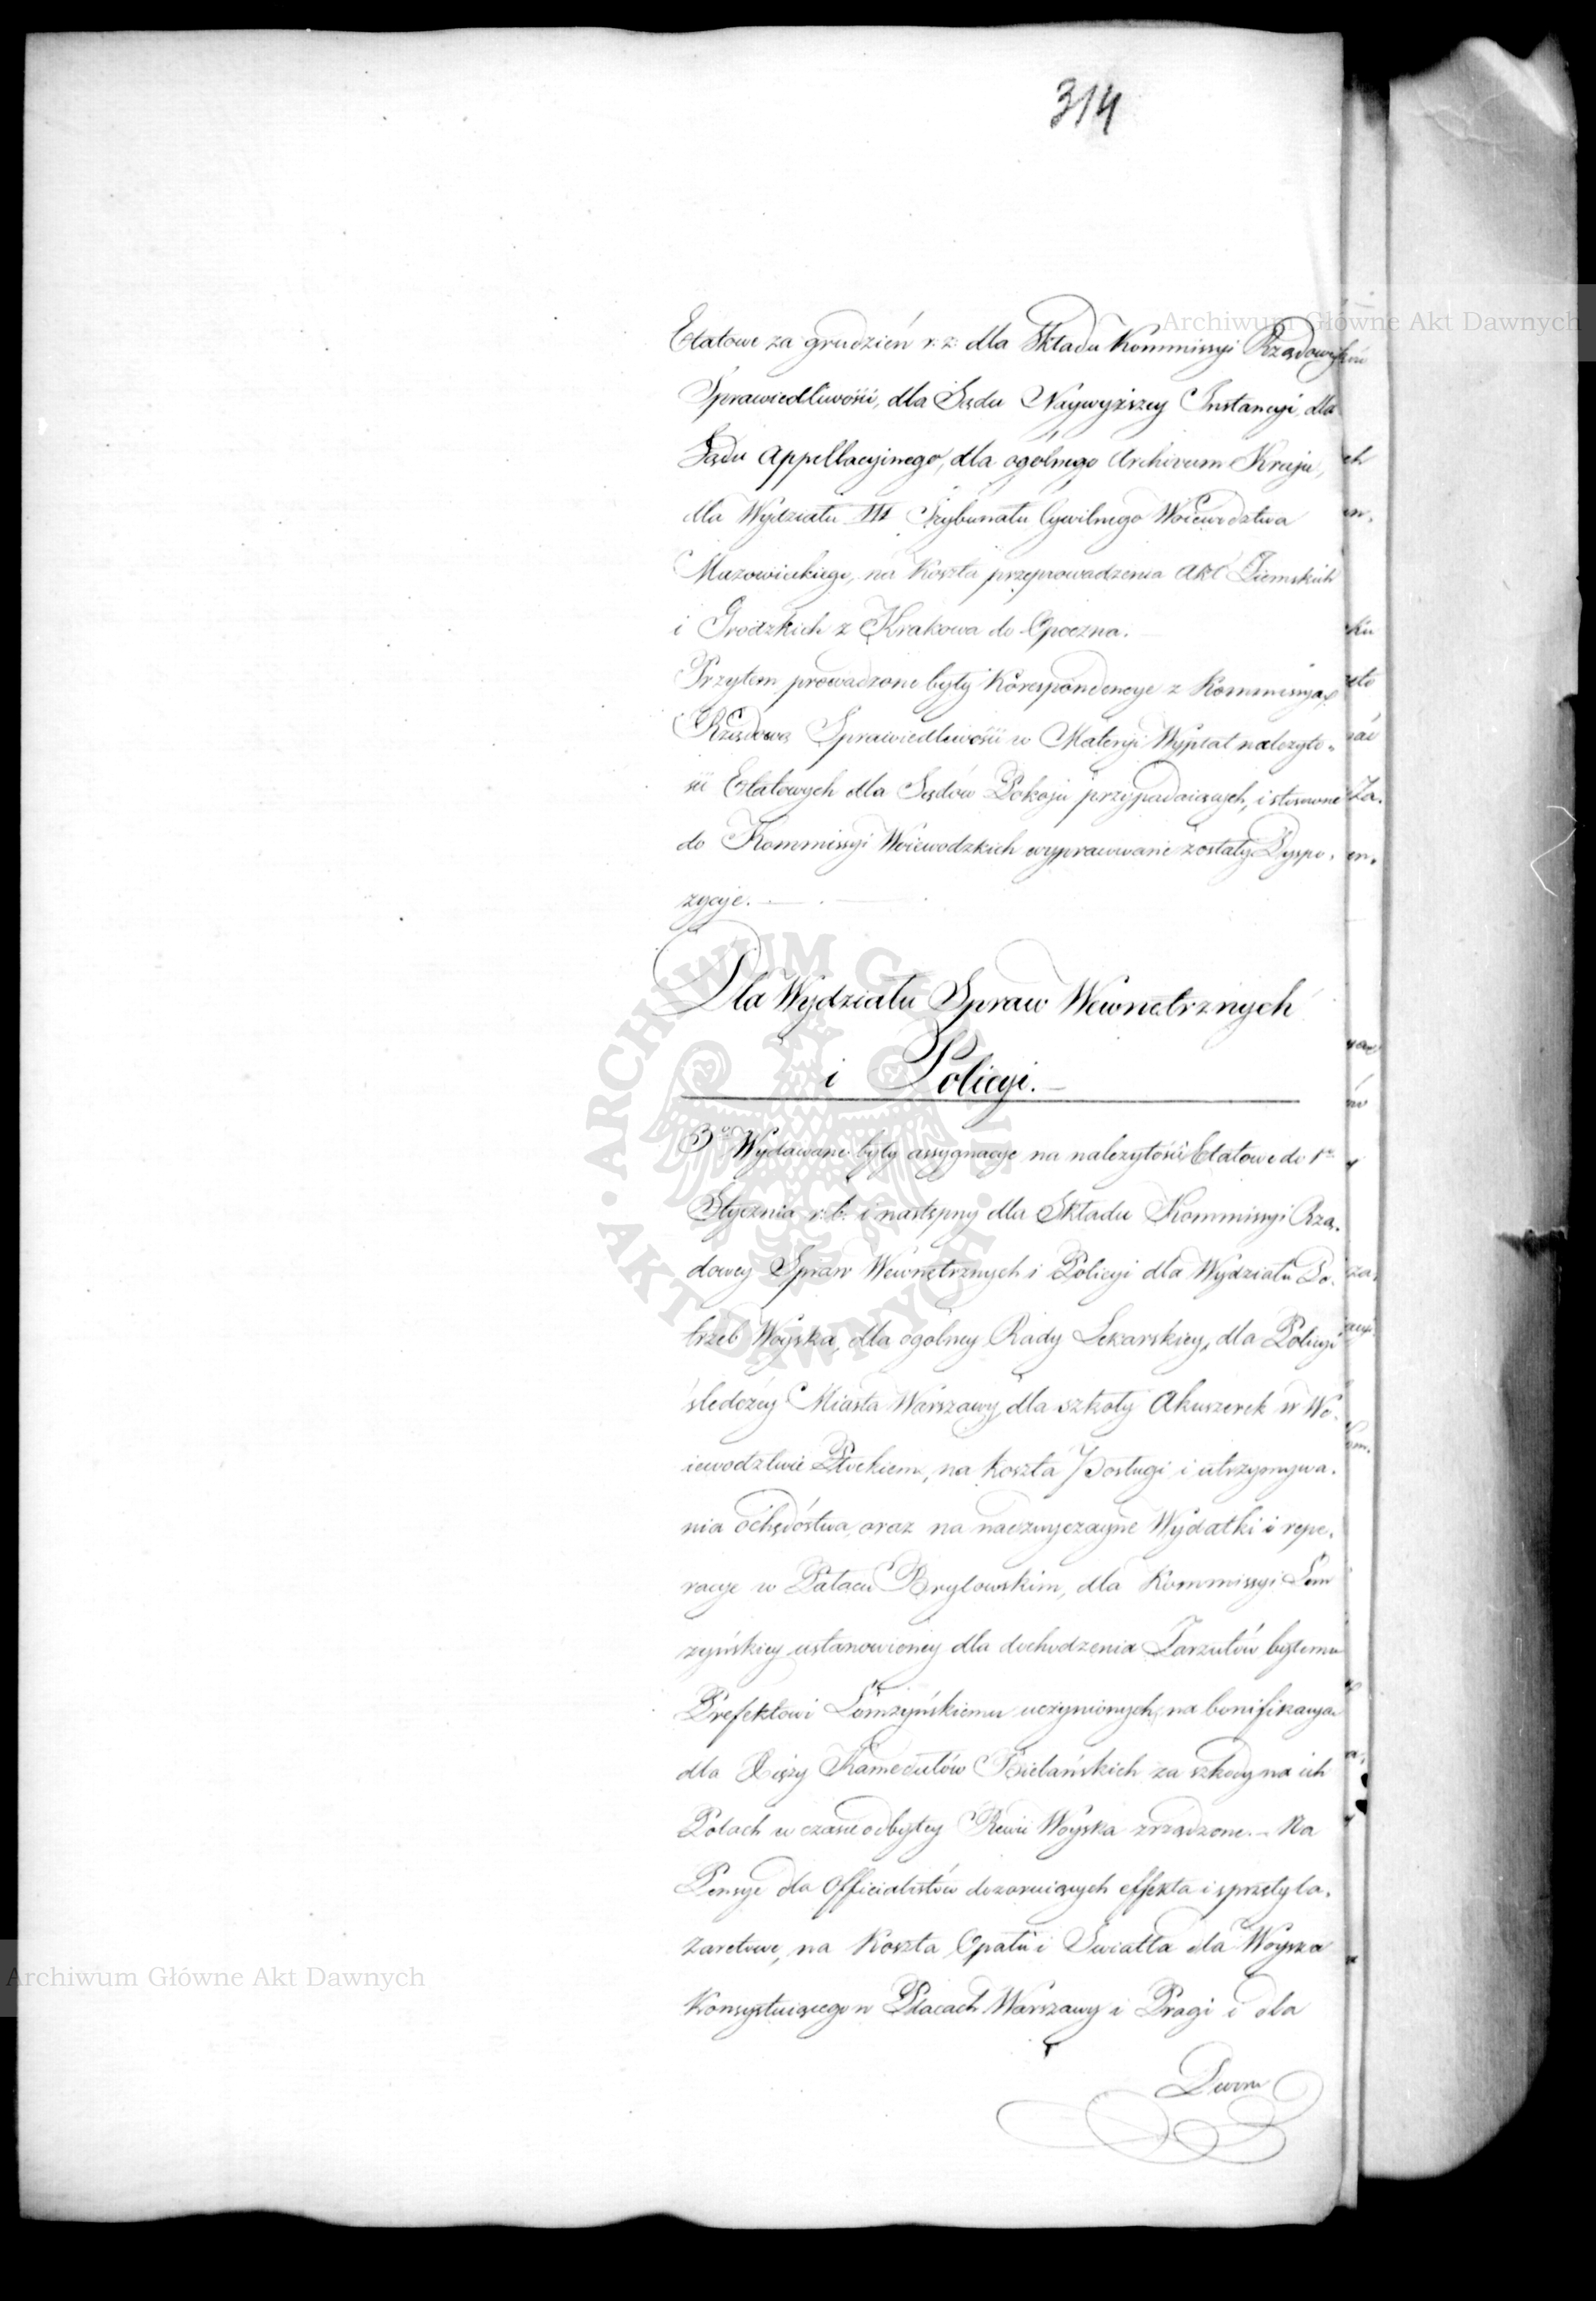 314
Etatowe za grudzień r. z. dla Składu Kommissyi Rządowey
Sprawiedliwości, dla Sądu Naywyższey Instancyi, dla
Sądu Appellacyjnego, dla ogólnego Archivum Kraju,
dla Wydziału III Trybunału Cywilnego Woiewodztwa
Mazowieckiego, na koszta przeprowadzenia Akt Ziemskich
i Grodzkich z Krakowa do Opoczna.
Przytem prowadzone były korespondencye z Kommissyą
Rządową Sprawiedliwości w Materyi Wypłat należyto-
ści Etatowych dla Sądów Pokoju przypadaiących, i stosowne
do Kommissyi Woiewodzkich wyprawiane zostały Dyspo-
zycye.
Dla Wydziału Spraw Wewnętrznych
i Policyi.
3 Wydawane były assygnacye na należytości Etatowe do 1
Stycznia r. b. i następny dla Składu Kommissyi Rzą-
dowey Spraw Wewnętrznych i Policyi dla Wydziału Po-
trzeb Woyska, dla ogólney Rady Lekarskiey, dla Policyi
śledczey Miasta Warszawy, dla szkoły Akuszerek w Wo-
iewodztwie Płockiem, na koszta Posługi i utrzymywa-
nia ochędóstwa, oraz na nadzwyczayne Wydatki i repe-
racye w Pałacu Brylowskim, dla Kommissyi Łom
żyńskiey ustanowioney dla dochodzenia Zarzutów byłemu
Prefektowi Łomżyńskiemu uczynionych, na bonifikacyą
dla Xięży Kamedułów Bielańskich za szkody na ich
Polach w czasie odbytey Rewii Woyska zrządzone. - Na
Pensye dla Officialistów dozoruiących effekta i sprzęty la-
zaretowe, na Koszta Opału i Światła dla Woyska
Konsystuiącego w Placach Warszawy i Pragi i dla
Dwom
Archiwum Główne Akt Dawnych
Archiwum Główne Akt Dawnych